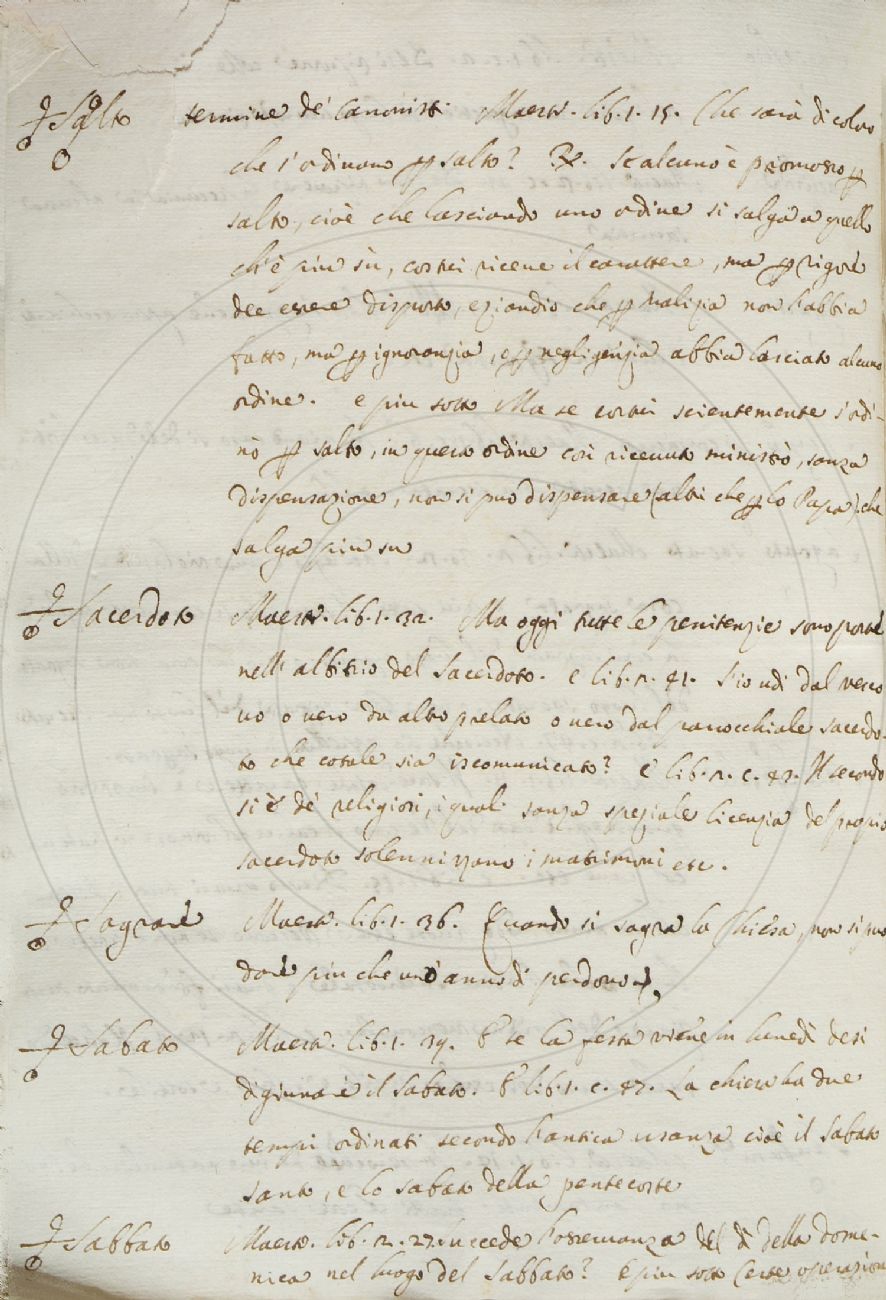 Salto termine de' Canonisti. Maestr. lib. 1. 15. Che sarà di coloro
che s'ordinano ꝑ salto? ℞. Se alcuno è promosso ꝑ
salto, cioè che lasciando uno ordine si salga a quello
ch'è piu sù, costui riceve il carattere, ma ꝑ rigore
dee essere disposto, eziandio che ꝑ malizia non l'abbia
fatto, ma ꝑ ignoranzia, o ꝑ negligenzia abbia lasciato alcuno
ordine. e piu sotto Ma se costui scientemente s'ordi-
nò ꝑ salto, in questo ordine così ricevuto ministrò, sanza
dispensazione, non si puo dispensare (altri che ꝑ lo Papa) che
salga piu su
Sacerdoto Maestr. lib. 1. 32. Ma oggi tutte le penitenzie sono poste
nell'albitrio del Sacerdoto. e lib. 2. 41. S'io udi dal vesco
vo o vero da alto prelato o vero dal parocchiale sacerdo-
to che cotale sia iscomunicato? e lib. 2. c. 43. Il secondo
si è de' religiosi, i quali sanza speziale licenzia del propio
sacerdoto solennizzano i matrimoni etc.
Sagrare Maestr. lib. 1. 36. Quando si sagra la Chiesa, non si puo
dare piu che uno anno di perdono.
Sabato Maestr. lib. 1. 39. E se la festa viene in lunedì desi
digiunare il Sabato. E lib. 1. c. 47. La chiesa ha due
tempi ordinati secondo l'antica usanza cioè il Sabato
santo, e lo sabato della pentecoste
Sabbato Maestr. lib. 2. 27. Succede l'osservanza del dì della dome-
nica nel luogo del Sabbato? E piu sotto Certe operazioni